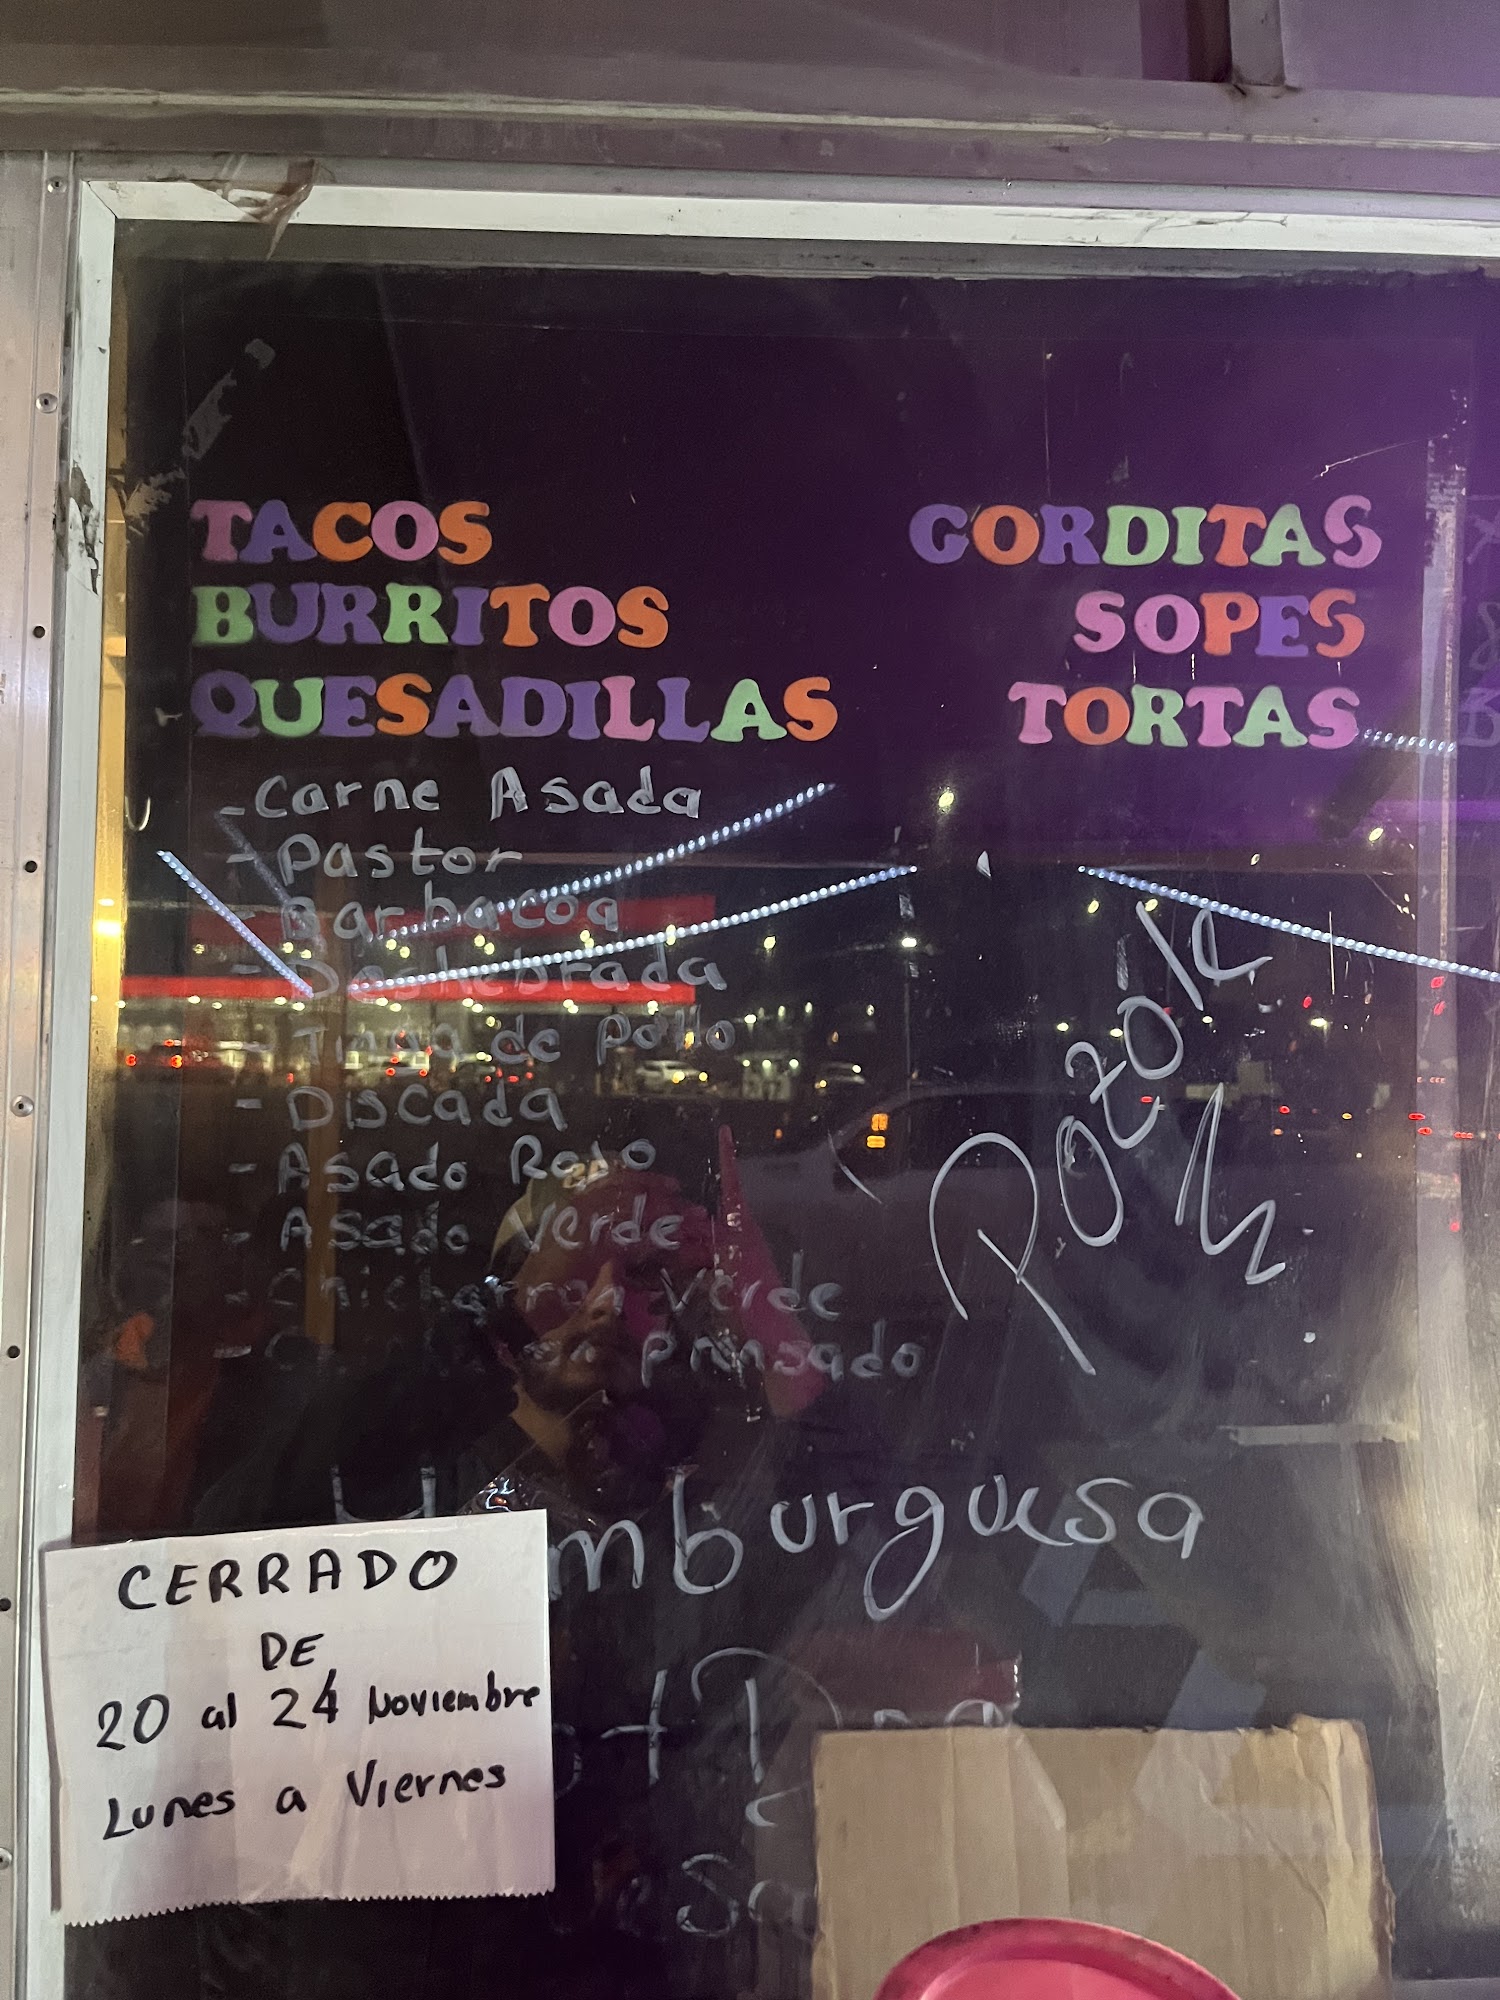 TACOS
BURRITOS
QUESADILLAS
GORDITAS
SOPES
TORTAS
- Carne Asada
- Pastor
- Barbacoa
- Deshebrada
- Tinga de Pollo
- Discada
- Asado Rojo
- Asado Verde
- Chicharron Verde
- prensado
Pozole
Hamburguesa
CERRADO
DE
20 al 24 Noviembre
Lunes a Viernes